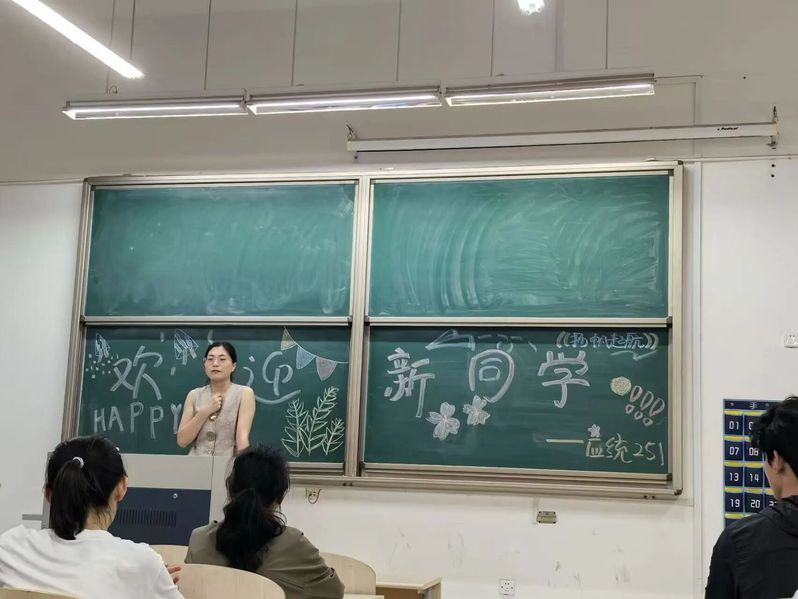 《扬帆起航》
欢迎新同学
HAPPY
——应统251
手
01 02
07 08
13 14
19 20